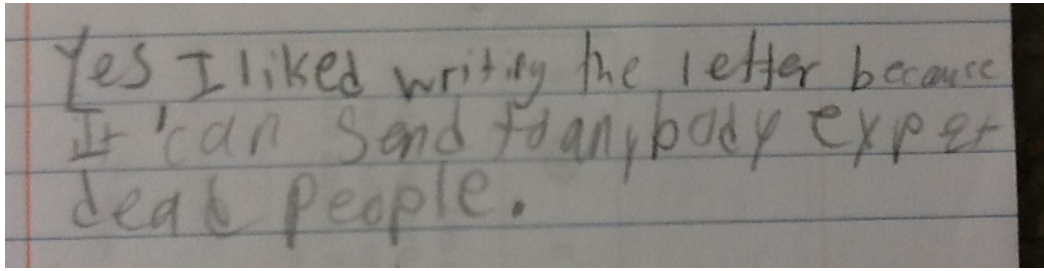 Yes I liked writing the letter because
It can send to anybody expet
dead people.